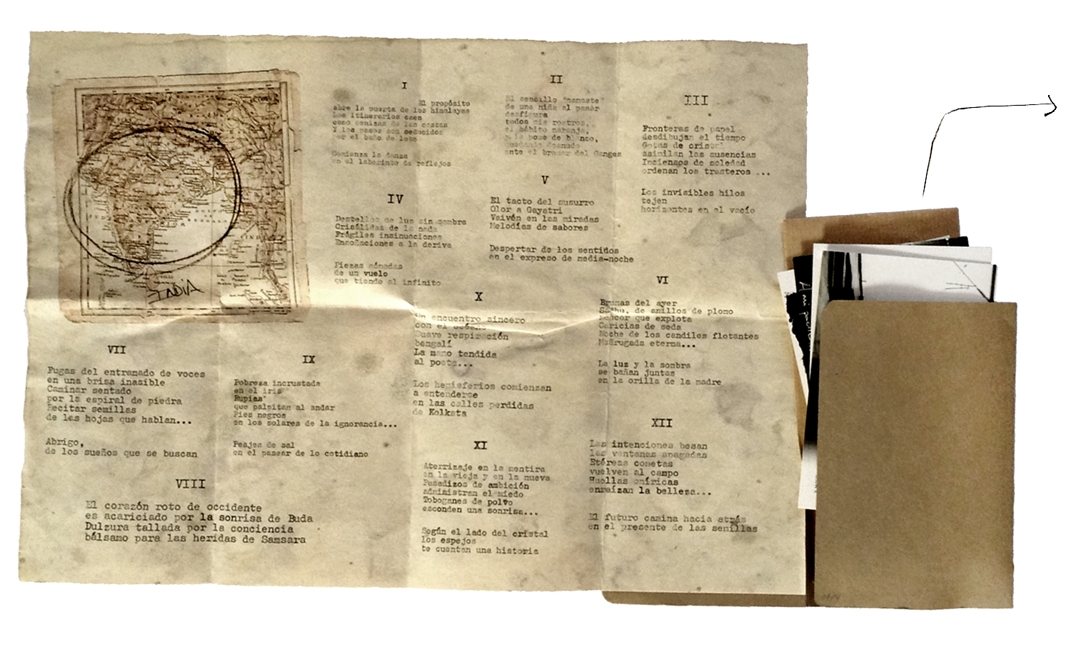 INDIA
I
El propósito
abre la puerta de los himalayas
Los itinerarios caen
como cenizas de las
Y los pasos son seducidos
por el baño de loto
Comienza la danza
en el laberinto de reflejos
II
El sencillo "namaste"
de una niña al pasar
desfigura
todos mis rostros,
el hábito naranja,
desnudo
ante el bramar del Ganges
III
Fronteras de papel
desdibujan el tiempo
Gotas de cristal
asimilan las ausencias
Inciensos de soledad
ordenan los trasteros ...
Los invisibles hilos
tejen
horizontes en el vacío
IV
Destellos de luz sin sombra
Crisálidas de la nada
Frágiles insinuaciones
Ensoñaciones a la deriva
Piezas nómadas
de un vuelo
que tiende al infinito
V
El tacto del susurro
Olor a Gayatri
Vaivén en las miradas
Melodías de sabores
Despertar de los sentidos
en el expreso de media-noche
VI
Brumas del ayer
Sadhu, de anillos de plomo
que explota
Caricias de seda
Noche de los candiles flotantes
Madrugada eterna...
La luz y la sombra
se bañan juntas
en la orilla de la madre
VII
Fugas del entramado de voces
en una brisa inasible
Caminar sentado
por la espiral de piedra
Recitar semillas
de las hojas que hablan...
Abrigo,
de los sueños que se buscan
VIII
El corazón roto de occidente
es acariciado por la sonrisa de Buda
Dulzura tallada por la conciencia
bálsamo para las heridas de Samsara
IX
Pobreza incrustada
en el iris
Rupias
que palpitan al andar
Pies negros
en los solares de la ignorancia...
Peajes de sal
en el pasear de lo cotidiano
X
Un encuentro sincero
con el
Suave respiración
bengalí
La mano tendida
al poeta...
Los hemisferios comienzan
a entenderse
en las calles perdidas
de Kolkata
XI
Aterrizaje en la mentira
en la vieja y en la nueva
Pasadizos de ambición
administran el miedo
Toboganes de polvo
esconden una sonrisa...
Según el lado del cristal
los espejos
te cuentan una historia
XII
Las intenciones besan
las ventanas apagadas
Etéreas cometas
vuelven al campo
Huellas oníricas
enraizan la belleza...
El futuro camina hacia atrás
en el presente de las semillas